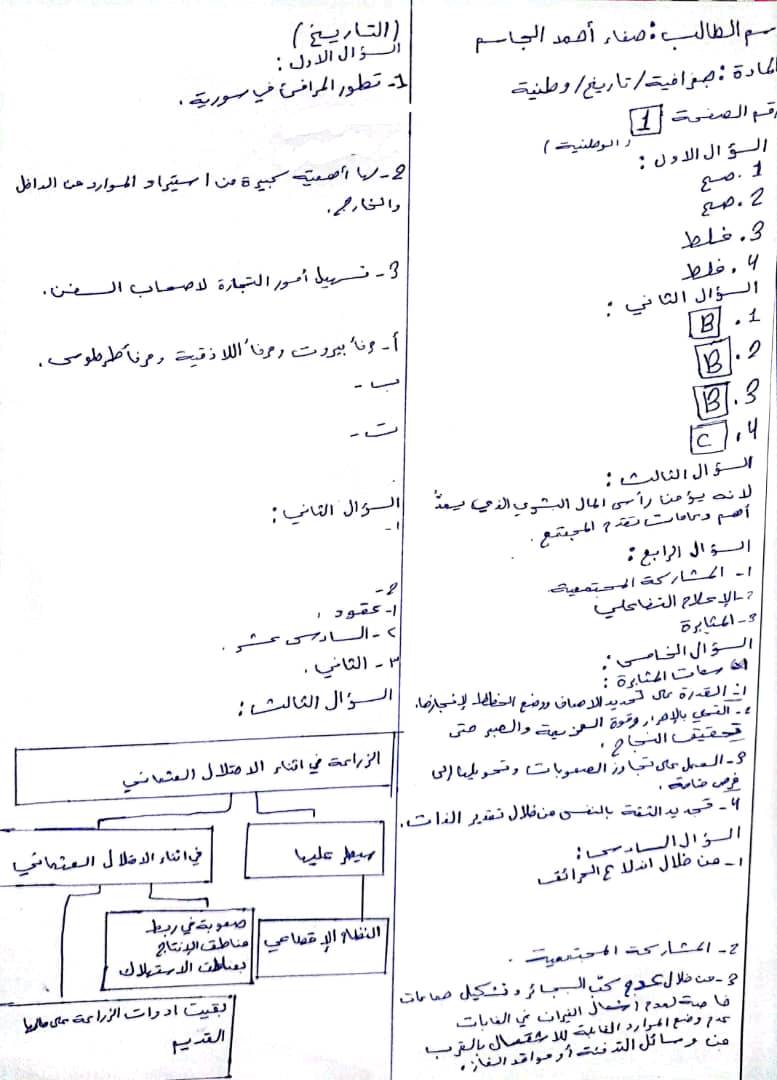 سم الطالب: صفاء أحمد الجاسم
المادة: جغرافية/تاريخ/وطنية
رقم الصفحة 1
(الوطنية)
السؤال الاول:
1. صح
2. صح
3. غلط
4. غلط
السؤال الثاني:
1. B
2. B
3. B
4. C
السؤال الثالث:
لانه يؤمن رأس المال البشري الذي يعدُّ
أهم دعامات تقدم المجتمع.
السؤال الرابع:
1- المشاركة المجتمعية
2- الإعلام التفاعلي
3- المثابرة
السؤال الخامس:
سمات المثابرة:
1- القدرة على تحديد الاهداف ووضع الخطط لإنجازها.
2- التحلي بالإصرار وقوة العزيمة والصبر حتى
تحقيق النجاح.
3- العمل على تجاوز الصعوبات وتحويلها إلى
فرص هامة.
4- تجديد الثقة بالنفس من خلال تقدير الذات.
السؤال السادس:
1- من خلال اندلاع الحرائق
2- المشاركة المجتمعية.
3- من خلال عدم السجائر وتشكيل
خاصة لعدم اشعال النيران في الغابات
عدم وضع الموارد القابلة للاشتعال بالقرب
من وسائل التدفئة أو مواقد الغاز.
(التاريخ)
السؤال الاول:
1- تطور المرافئ في سورية.
2- لها أهمية كبيرة من استيراد الموارد من الداخل
والخارج.
3- تسهيل أمور التجارة لاصحاب السفن.
أ- مرفأ بيروت ومرفأ اللاذقية ومرفأ طرطوس.
ب-
ت-
السؤال الثاني:
1-
2-
١- عقود.
٢- السادس عشر.
٣- الثاني.
السؤال الثالث:
الزراعة في اثناء الاحتلال العثماني
سيطر عليها
في اثناء الاحلال العثماني
النظام الإقطاعي
صعوبة في ربط
مناطق الإنتاج
بمناطق الاستهلاك
بقيت ادوات الزراعة على حالها
القديم